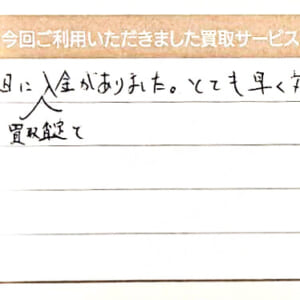 今回ご利用いただきました買取サービス
日に入金がありました。とても早く
買取査定で